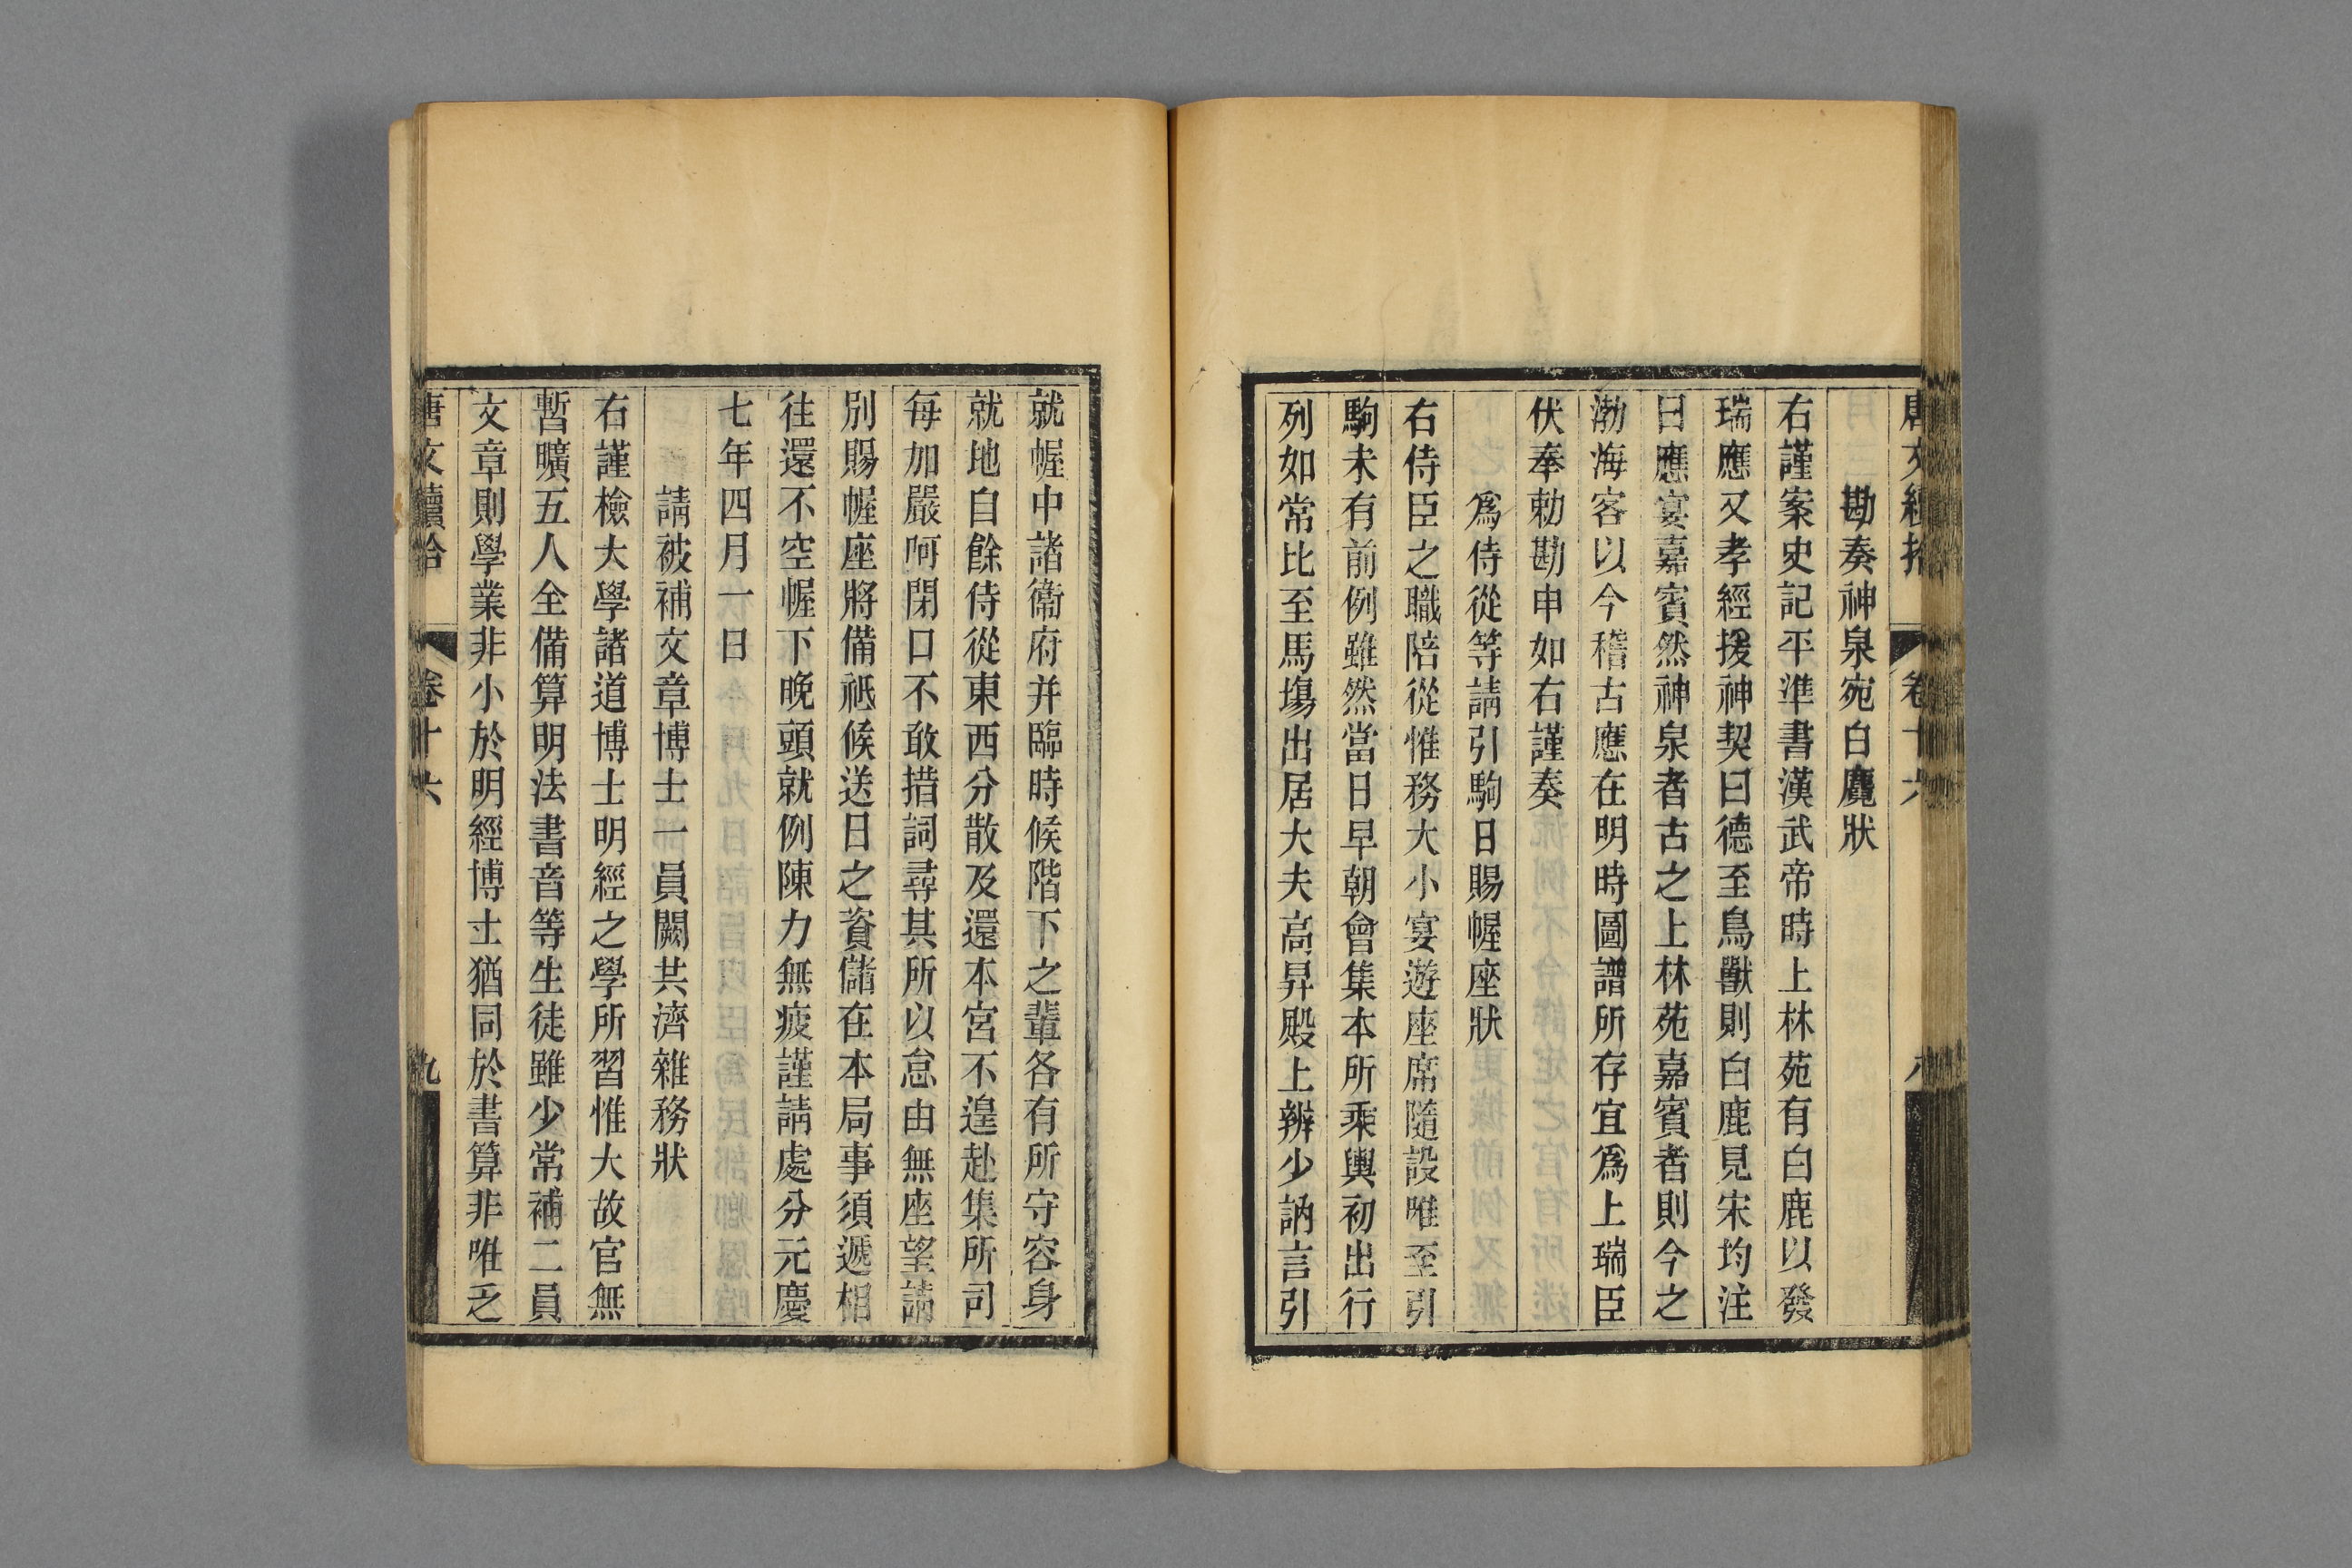 勘奏神泉宛白麑狀
右謹案史記平準書漢武帝時上林苑有白鹿以發
瑞應又孝經援神契曰德至鳥獸則白鹿見宋均注
曰應宴嘉賓然神泉者古之上林苑嘉賓者則今之
渤海客以今稽古應在明時圖譜所存宜爲上瑞臣
伏奉勅勘申如右謹奏
爲侍從等請引駒日賜幄座狀
右侍臣之職陪從惟務大小宴遊座席隨設唯至引
駒未有前例雖然當日早朝會集本所乘輿初出行
列如常比至馬塲出居大夫高昇殿上辨少訥言引
就幄中諸衞府并臨時候階下之輩各有所守容身
就地自餘侍從東西分散及還本宮不遑赴集所司
每加嚴呵閉口不敢措詞尋其所以怠由無座望請
別賜幄座將備祗候送日之資儲在本局事須遞相
往還不空幄下晚頭就例陳力無疲謹請處分元慶
七年四月一日
請被補文章博士一員闕共濟雜務狀
右謹檢大學諸道博士明經之學所習惟大故官無
暫曠五人全備算明法書音等生徒雖少常補二員
文章則學業非小於明經博士猶同於書算非唯乏
唐文續拾
卷十六
九